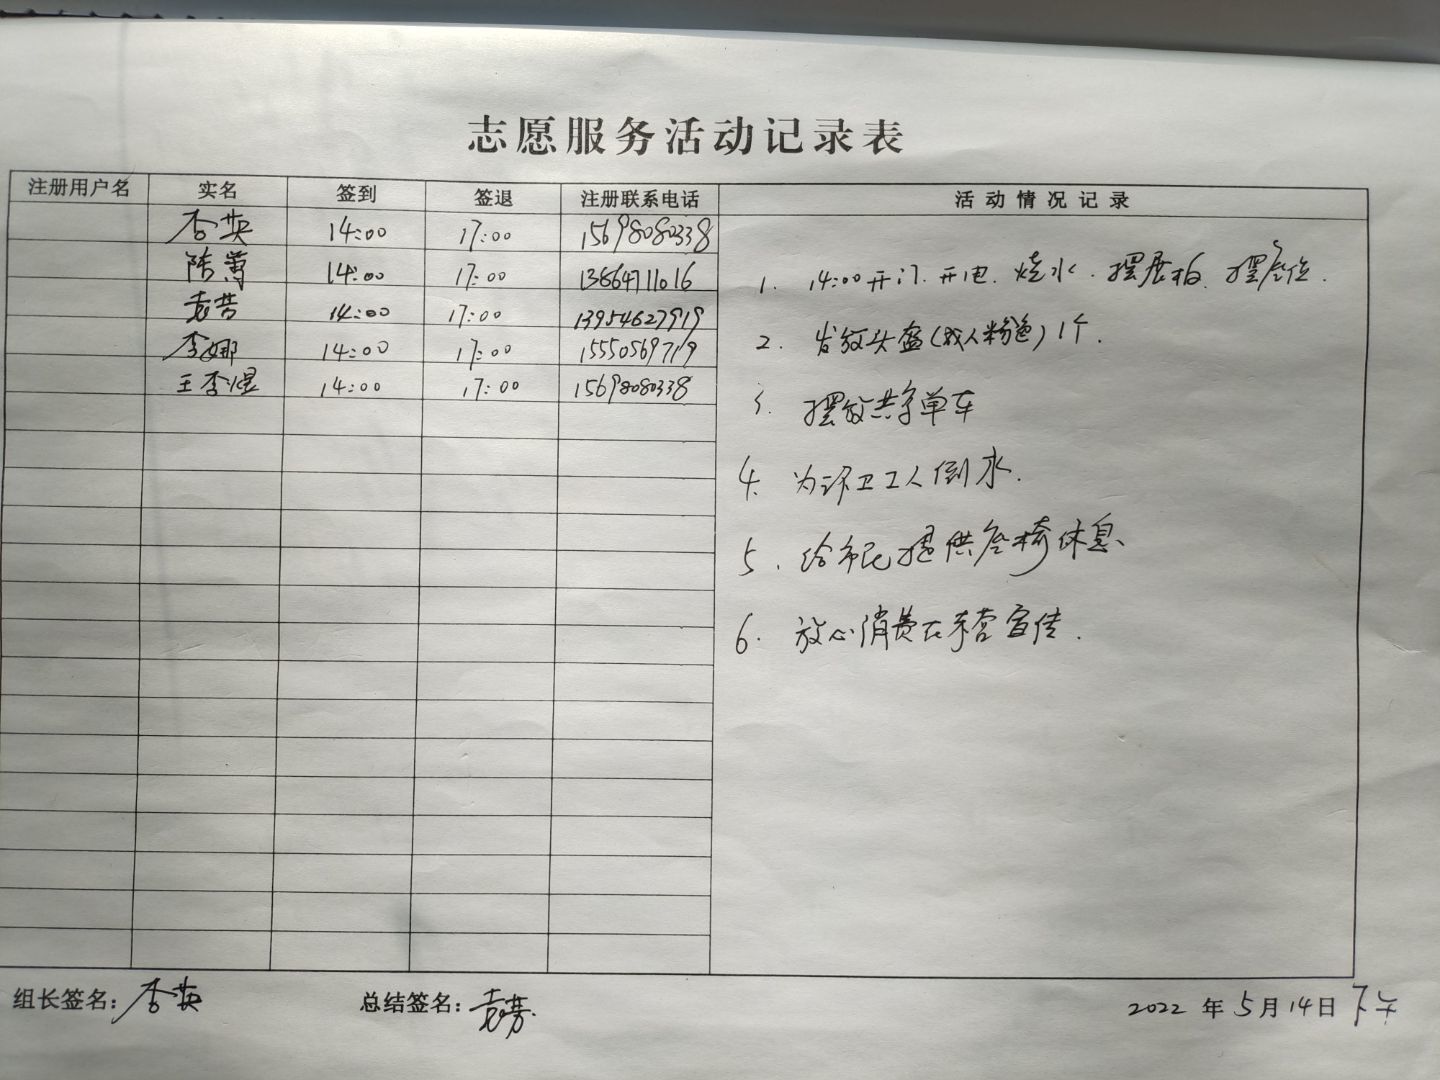 志愿服务活动记录表
注册用户名 实名 签到 签退 注册联系电话 活动情况记录
李英 14:00 17:00 15698080338
陆萍 14:00 17:00 13864711016
袁芳 14:00 17:00 13954627919
李娜 14:00 17:00 15550569719
王李煜 14:00 17:00 15698080338
1. 14:00开门.开电.烧水.摆展板.摆座位.
2. 发放头盔(成人粉色)1个.
3. 摆放共享单车
4. 为环卫工人倒水.
5. 给市民提供座椅休息、
6. 放心消费在东营宣传.
组长签名:李英 总结签名:袁芳. 2022 年 5 月 14 日 下午